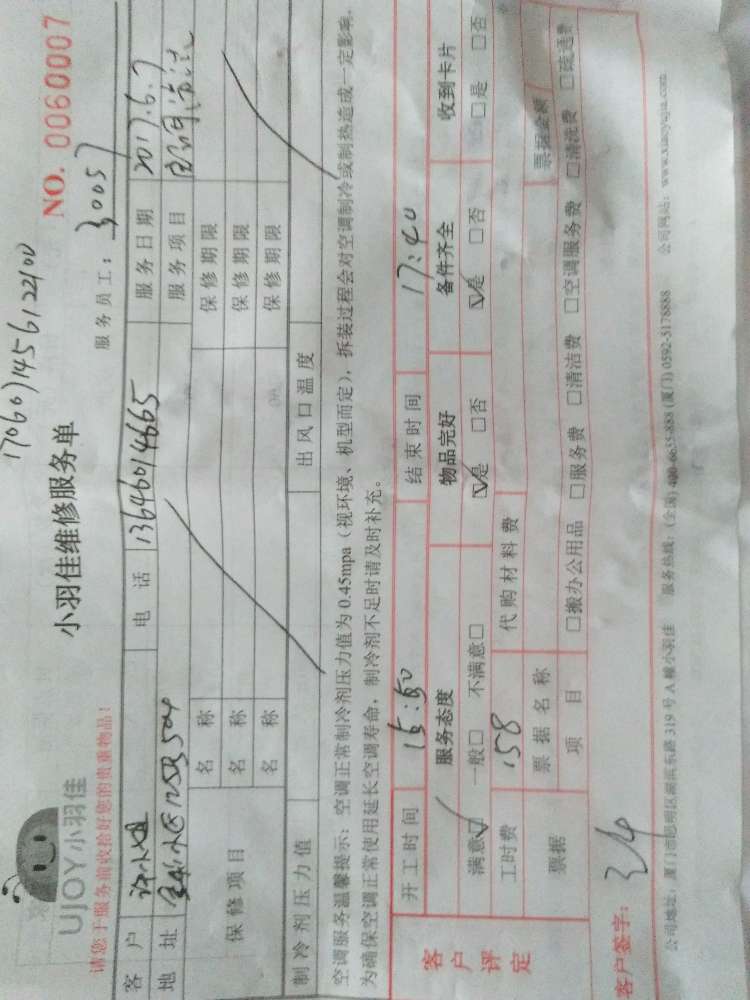 1706071456122100
UJOY小羽佳
小羽佳维修服务单
NO. 0060007
请您于服务前收拾好您的贵重物品！
服务员工：30057
客户 电话 13646014665 服务日期 2017.6.7
地址 服务项目 空调清洗
保修项目 名称 保修期限
名称 保修期限
名称 保修期限
制冷剂压力值 出风口温度
空调服务温馨提示：空调正常制冷剂压力值为 0.45mpa（视环境、机型而定），拆装过程会对空调制冷或制热造成一定影响。
为确保空调正常使用延长空调寿命，制冷剂不足时请及时补充。
客户评定
开工时间 15:50 结束时间 17:40
服务态度 物品完好 备件齐全 收到卡片
满意☑ 一般□ 不满意□ ☑是 □否 ☑是 □否 □是 □否
工时费 158 代购材料费
票据 票据名称 票据金额
项目 □搬办公用品 □服务费 □清洁费 □空调服务费 □清洗费 □疏通费
客户签字：
公司地址：厦门市思明区湖滨东路 319 号 A 幢小羽佳 服务热线：(全国) 400-6635-888 (厦门) 0592-5178888 公司网站：www.xiaoyujia.com